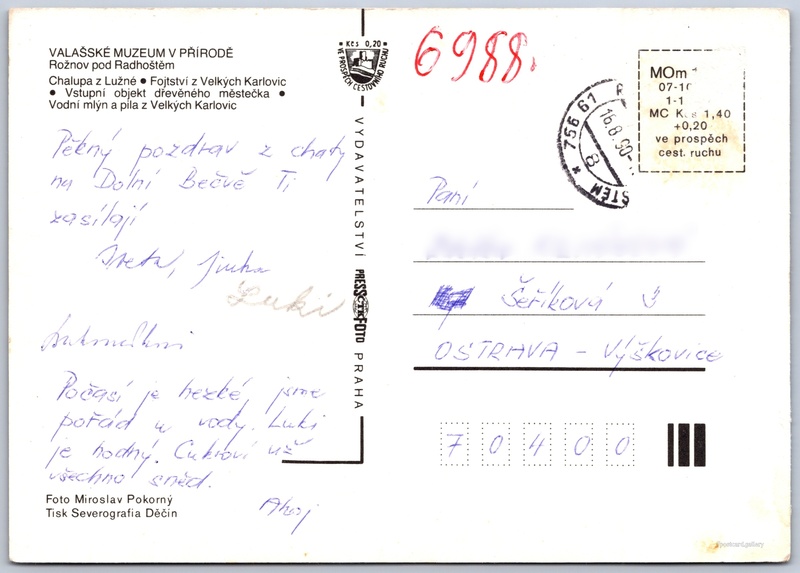 VALAŠSKÉ MUZEUM V PŘÍRODĚ
Rožnov pod Radhoštěm
Chalupa z Lužné ● Fojtství z Velkých Karlovic
● Vstupní objekt dřevěného městečka ●
Vodní mlýn a pila z Velkých Karlovic
Pěkný pozdrav z chaty
na Dolní Bečvě Ti
zasílají
Iveta, Jirka
Luki
Počasí je hezké, jsme
pořád u vody. Luki
je hodný. Cukroví už
všechno snědl.
Ahoj
Foto Miroslav Pokorný
Tisk Severografia Děčín
Kčs 0,20
VE PROSPĚCH CESTOVNÍHO RUCHU
VYDAVATELSTVÍ PRESSFOTO PRAHA
6988.
756 61
16.8.90
8
MOm
07-10
1-1
MC Kčs 1,40
+0,20
ve prospěch
cest. ruchu
Paní
Šeříkový 3
OSTRAVA - Výškovice
7 0 4 0 0
postcard.gallery